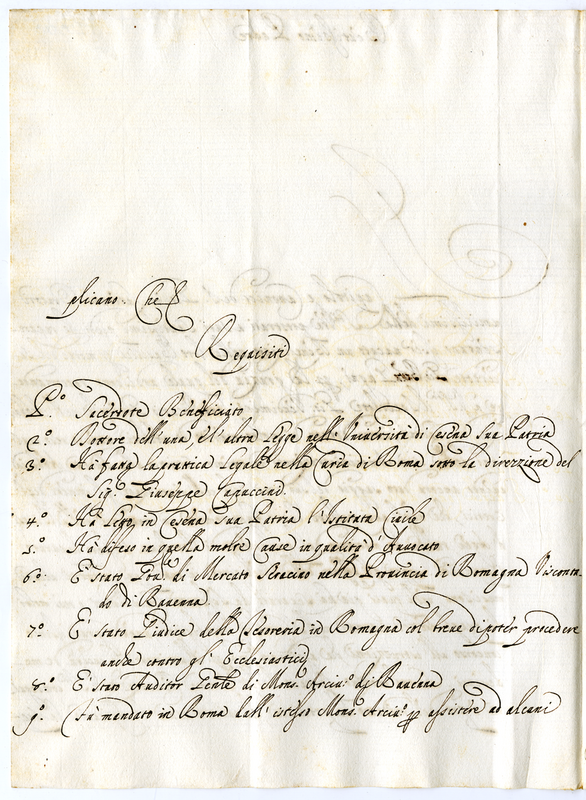 plicano. Che &
Requisiti
P.º Sacerdote Beneficiato
2.º Dottore dell'una, e l'altra Legge nell'Università di Cesena sua Patria
3.º Hà fatta la prattica Legale nella Curia di Roma sotto la direzzione del
Sig.r Giuseppe Capuccini
4.º Hà letto in Cesena sua Patria l'Istituta Civile
5.º Hà difeso in quella molte Cause in qualità d'Auvocato
6.º E' stato Gov.re di Mercato Saracino nella Provincia di Romagna
do di Ravenna
7.º E' stato Giudice della Tesoreria in Romagna col breve di poter procedere
anche contro gl'Ecclesiastici
8.º E' stato Auditor Gen'le di Mons. Arciv.º di Ravenna
9.º Fù mandato in Roma dall'istesso Mons. Arciv.º p assistere ad alcuni